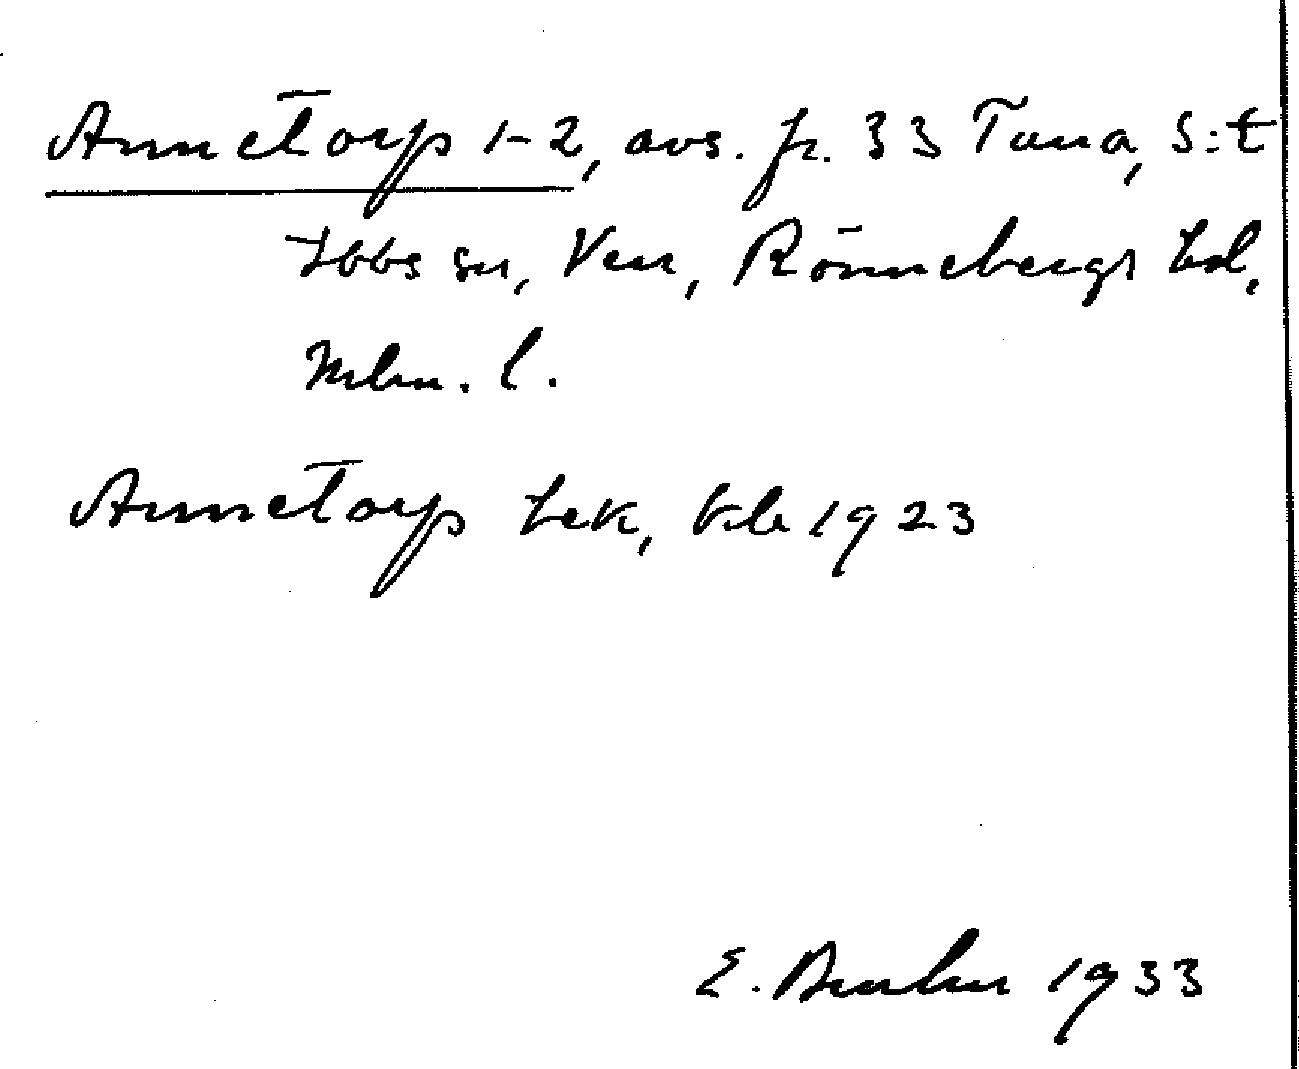 Annetorp 1-2, avs. fr. 33 Tuna, S:t
Ibbs sn, Ven, Rönnebergs hd,
Mlm. l.
Annetorp tek, 1923
E. 1933